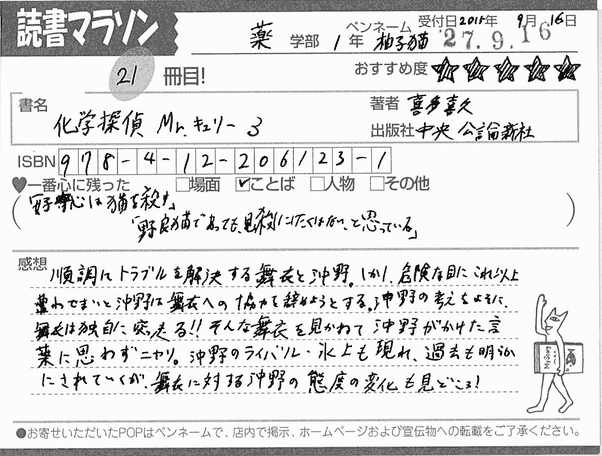 読書マラソン
薬 学部 1年 ペンネーム 柚子猫 受付日2015年 9月16日
27.9.16
21 冊目!
おすすめ度 ★★★★★
書名 化学探偵 Mr.キュリー 3
著者 喜多喜久
出版社 中央公論新社
ISBN 978-4-12-206123-1
♥一番心に残った □場面 ☑ことば □人物 □その他
「好奇心は猫を殺す」
「野良猫であっても、見殺しにしたくはない、と思っている」
感想
順調にトラブルを解決する舞衣と沖野。しかし、危険な目にこれ以上
遭わせまいと沖野は舞衣への協力を辞めようとする。沖野の考えをよそに、
舞衣は独自に突走る!!そんな舞衣を見かねて沖野がかけた言
葉に思わずニヤリ。沖野のライバル・氷上も現れ、過去も明らか
にされていくが、舞衣に対する沖野の態度の変化も見どころ!
●お寄せいただいたPOPはペンネームで、店内で掲示、ホームページおよび宣伝物への転載をご了承ください。